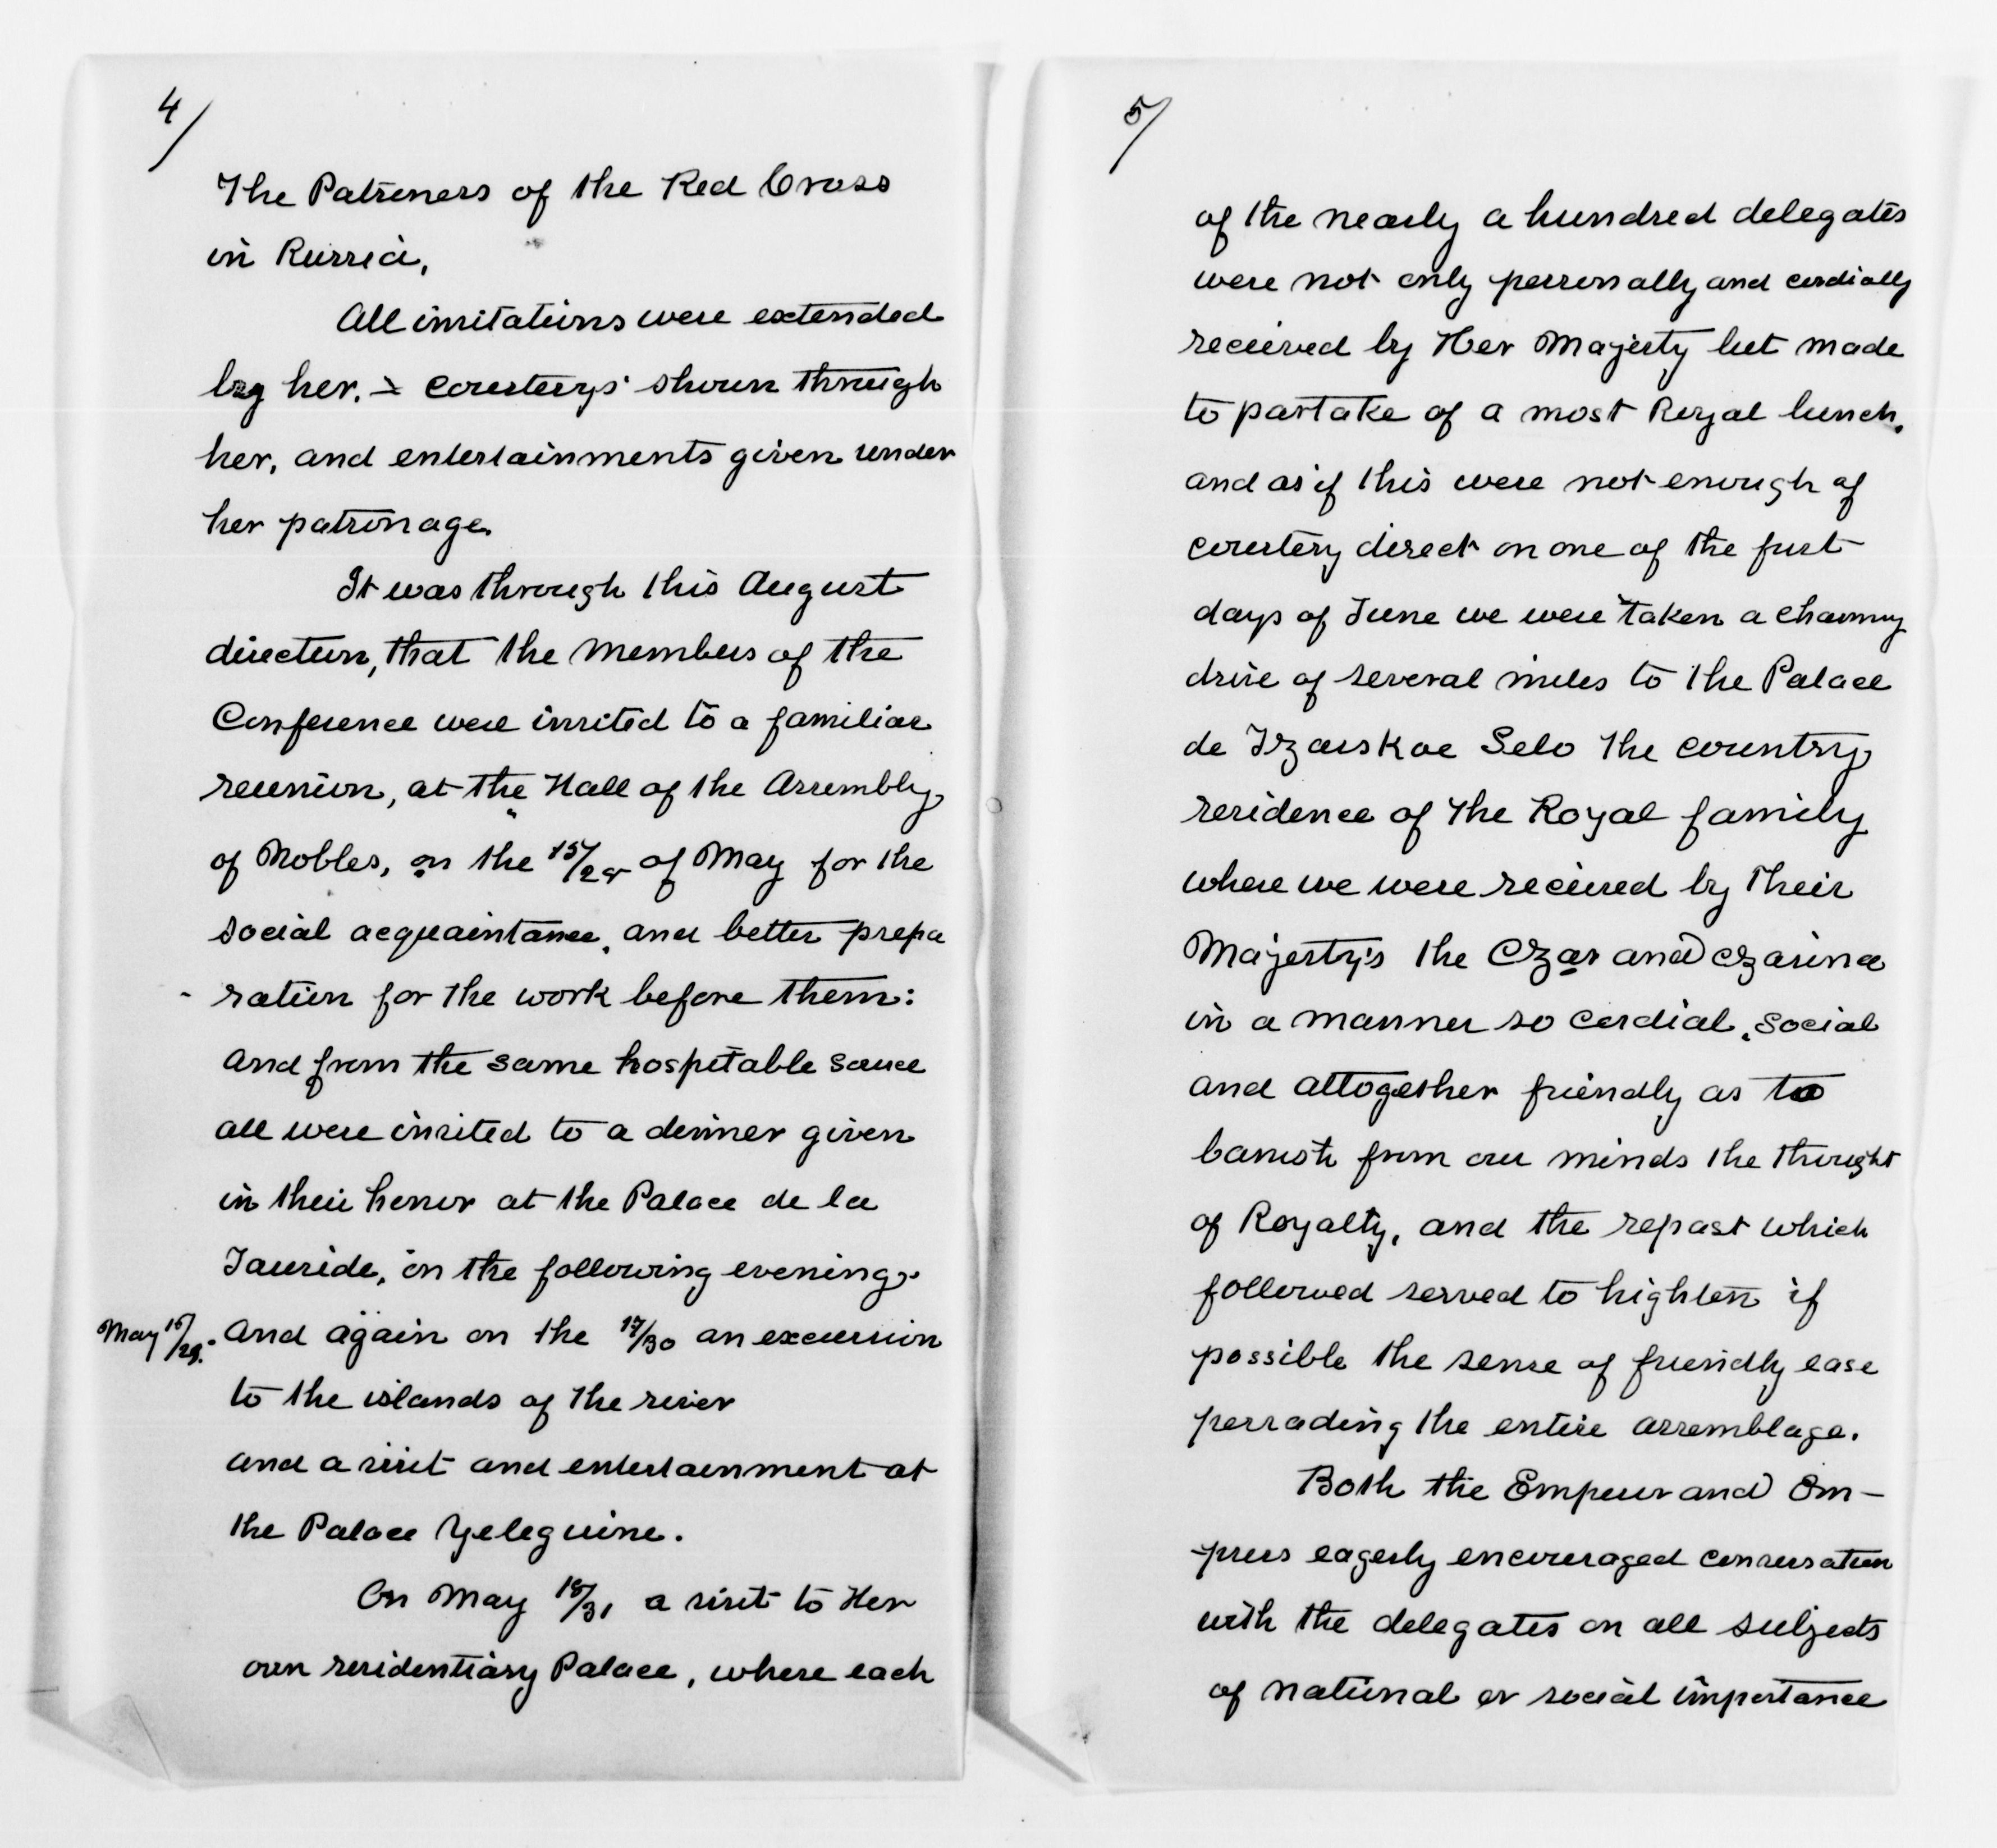 4/
The Patroness of the Red Cross
in Russia,
All invitations were extended
by her. – Courtesys shown through
her, and entertainments given under
her patronage.
It was through this August
direction, that the members of the
Conference were invited to a familiar
reunion, at the Hall of the Assembly
of Nobles, on the 15/28 of May for the
social acquaintance, and better prepa
- ration for the work before them:
and from the same hospitable source
all were invited to a dinner given
in their honor at the Palace de la
Tauride, on the following evening.
May 16/29. And again on the 17/30 an excursion
to the islands of the river
and a visit and entertainment at
the Palace Yeleguine.
On May 18/31 a visit to Her
own residentiary Palace, where each
5/
of the nearly a hundred delegates
were not only personally and cordially
received by Her Majesty but made
to partake of a most Royal lunch,
and as if this were not enough of
courtesy direct on one of the first
days of June we were taken a charming
drive of several miles to the Palace
de Tzarskoe Selo the country
residence of the Royal family
where we were received by their
Majesty's the Czar and Czarina
in a manner so cordial, social
and altogether friendly as to
banish from our minds the thought
of Royalty, and the repast which
followed served to highten if
possible the sense of friendly ease
pervading the entire assemblage.
Both the Emperor and Em-
-press eagerly encouraged conversation
with the delegates on all subjects
of national or social importance